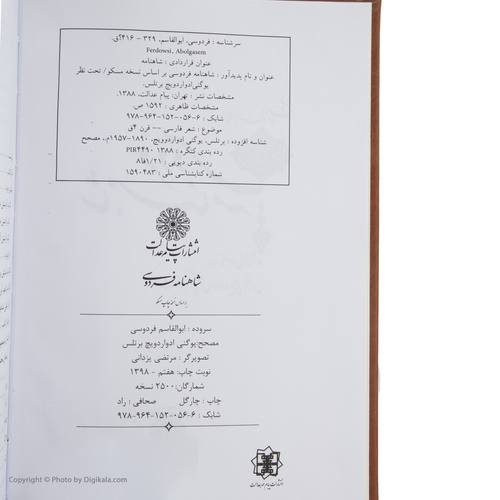 سرشناسه : فردوسی، ابوالقاسم، ۳۲۹ - ۴۱۶؟ق.
Ferdowsi, Abolgasem
عنوان قراردادی : شاهنامه
عنوان و نام پدیدآور : شاهنامه فردوسی بر اساس نسخه مسکو/ تحت نظر
یوگنی‌ادواردویچ برتلس.
مشخصات نشر : تهران: پیام عدالت، ۱۳۸۸.
مشخصات ظاهری : ۱۵۹۲ ص.
شابک : ۶-۰۵۶-۱۵۲-۹۶۴-۹۷۸
موضوع : شعر فارسی -- قرن ۴ق
شناسه افزوده : برتلس، یوگنی ادواردوویچ، ۱۸۹۰-۱۹۵۷م.، مصحح
رده بندی کنگره : ۱۳۸۸ PIR۴۴۹۰
رده بندی دیویی : ۱/۲۱فا۸
شماره کتابشناسی ملی : ۱۵۹۰۴۸۳
انتشارات پیام عدالت
شاهنامه فردوسی
بر اساس نسخه چاپ مسکو
سروده : ابوالقاسم فردوسی
مصحح:یوگنی ادواردویچ برتلس
تصویرگر : مرتضی یزدانی
نوبت چاپ: هفتم - ۱۳۹۸
شمارگان: ۲۵۰۰ نسخه
چاپ : چارگل صحافی : راد
شابک : ۶-۰۵۶-۱۵۲-۹۶۴-۹۷۸
انتشارات پیام عدالت
Copyright © Photo by Digikala.com